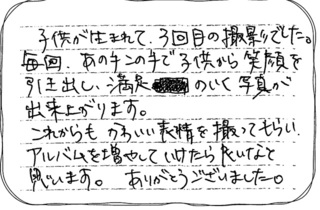 子供が生まれて、3回目の撮影でした。
毎回、あの手この手で子供から笑顔を
引き出し、満足のいく写真が
出来上がります。
これからもかわいい表情を撮ってもらい
アルバムを増やしていけたら良いなと
思います。ありがとうございました。